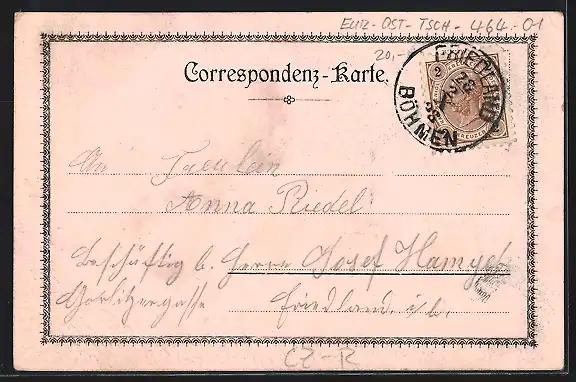 EUR-OST-TSCH-464-01
20,-
Correspondenz-Karte.
FRIEDLAND
BÖHMEN
28
2
98
2
KREUZER
An Fraeulein
Anna Riedel
Beschäftig b. Herrn Josef
Görlitzergasse Friedland i/b.
CZ-R